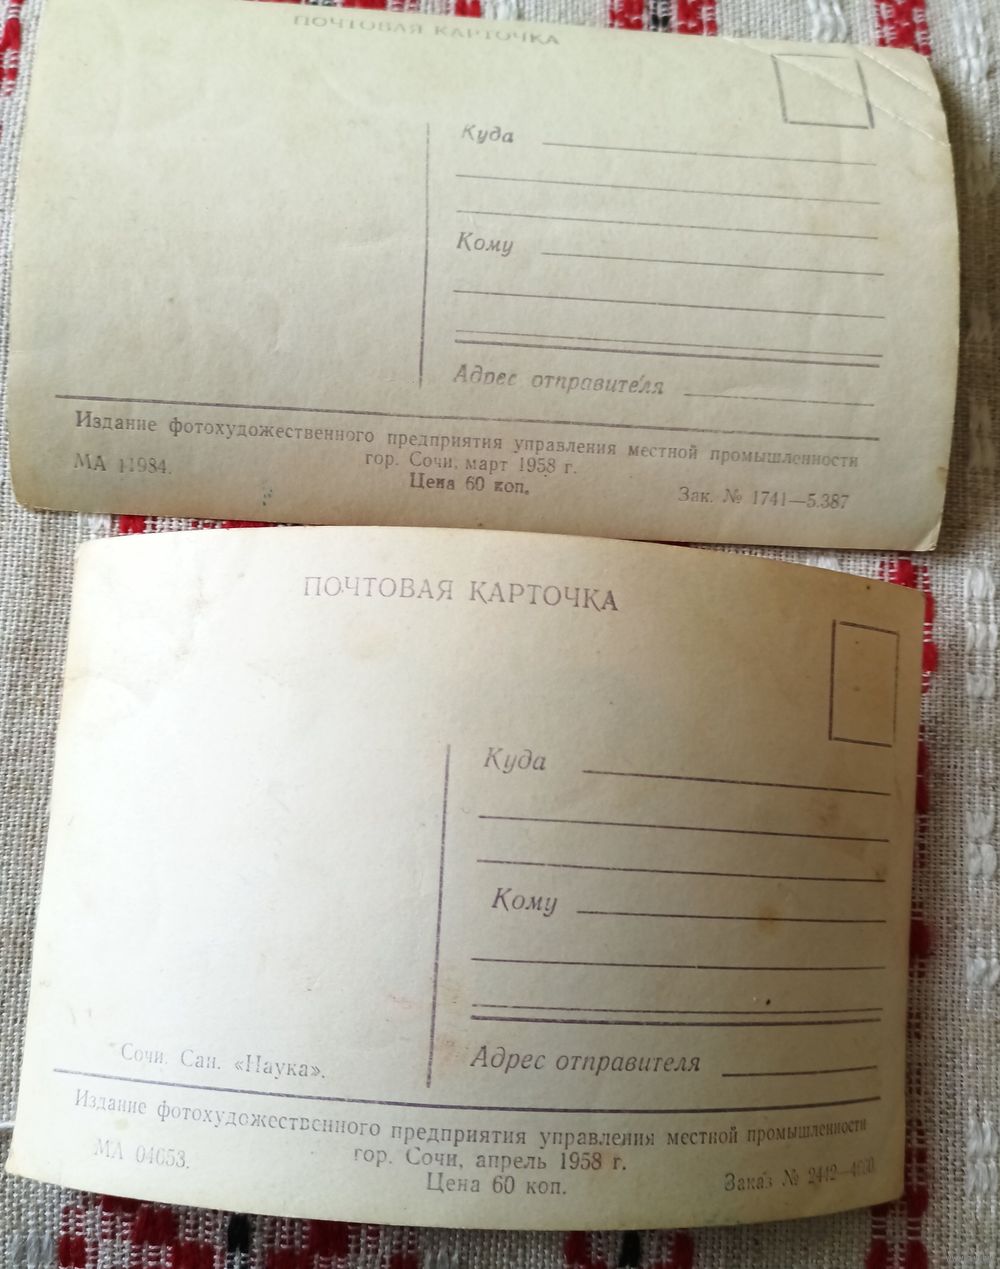 ПОЧТОВАЯ КАРТОЧКА
Куда
Кому
Адрес отправителя
Издание фотохудожественного предприятия управления местной промышленности
гор. Сочи, март 1958 г.
МА 11984.
Цена 60 коп.
Зак. № 1741—5.387
ПОЧТОВАЯ КАРТОЧКА
Куда
Кому
Адрес отправителя
Сочи. Сан. «Наука».
Издание фотохудожественного предприятия управления местной промышленности
гор. Сочи, апрель 1958 г.
МА 04653.
Цена 60 коп.
Заказ №